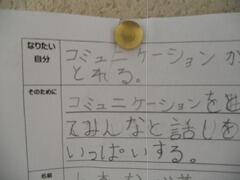 なりたい
自分
コミュニケーションが
とれる。
そのために
コミュニケーションを
てみんなと話しを
いっぱいする。
名前